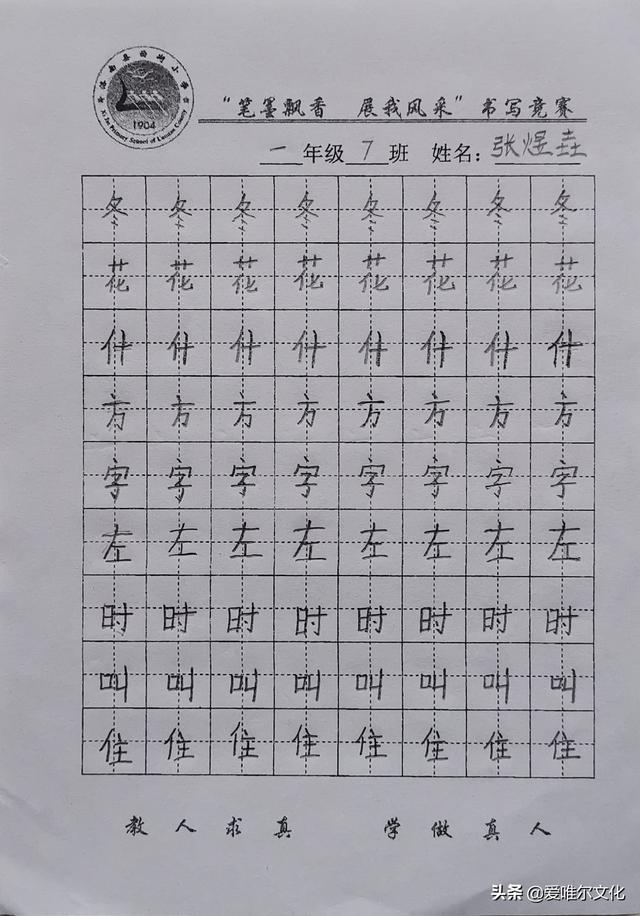 "笔墨飘香 展我风采"书写竞赛
1904
一 年级 7 班 姓名：张煜垚
冬 冬 冬 冬 冬 冬 冬 冬
花 花 花 花 花 花 花 花
什 什 什 什 什 什 什 什
方 方 方 方 方 方 方 方
字 字 字 字 字 字 字 字
左 左 左 左 左 左 左 左
时 时 时 时 时 时 时 时
叫 叫 叫 叫 叫 叫 叫 叫
住 住 住 住 住 住 住 住
教人求真 学做真人
头条 @爱唯尔文化